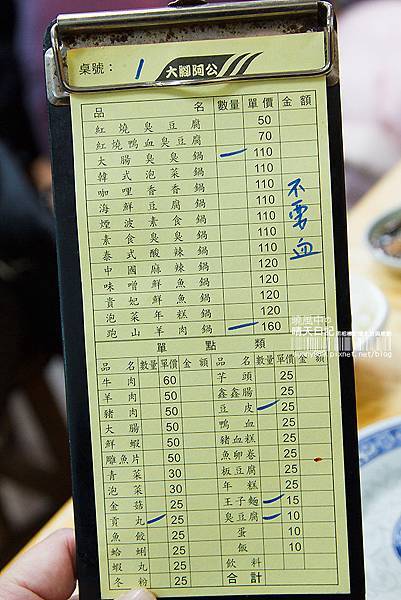 桌號： 1 大腳阿公
品 名 數量 單價 金額
紅燒臭豆腐 50
紅燒鴨血臭豆腐 70
大腸臭臭鍋 110
韓式泡菜鍋 110
咖哩香香鍋 110
海鮮豆腐鍋 110
煙波素食鍋 110
素食臭臭鍋 110
泰式酸辣鍋 110
中國麻辣鍋 110
味噌鮮魚鍋 120
貴妃鮮魚鍋 120
泡菜年糕鍋 120
跑山羊肉鍋 160
不要血
單點類
品名 數量 單價 金額 品名 數量 單價 金額
牛肉 60 芋頭 25
羊肉 50 鑫鑫腸 25
豬肉 50 豆皮 25
大腸 50 鴨血 25
鮮蝦 50 豬血糕 25
雕魚片 50 魚卵卷 25
青菜 30 板豆腐 25
泡菜 30 年糕 25
金菇 25 王子麵 15
貢丸 25 臭豆腐 10
魚餃 25 蛋 10
蛤蜊 25 飯 10
蝦丸 25 飲料
冬粉 25 合計
晴天日記